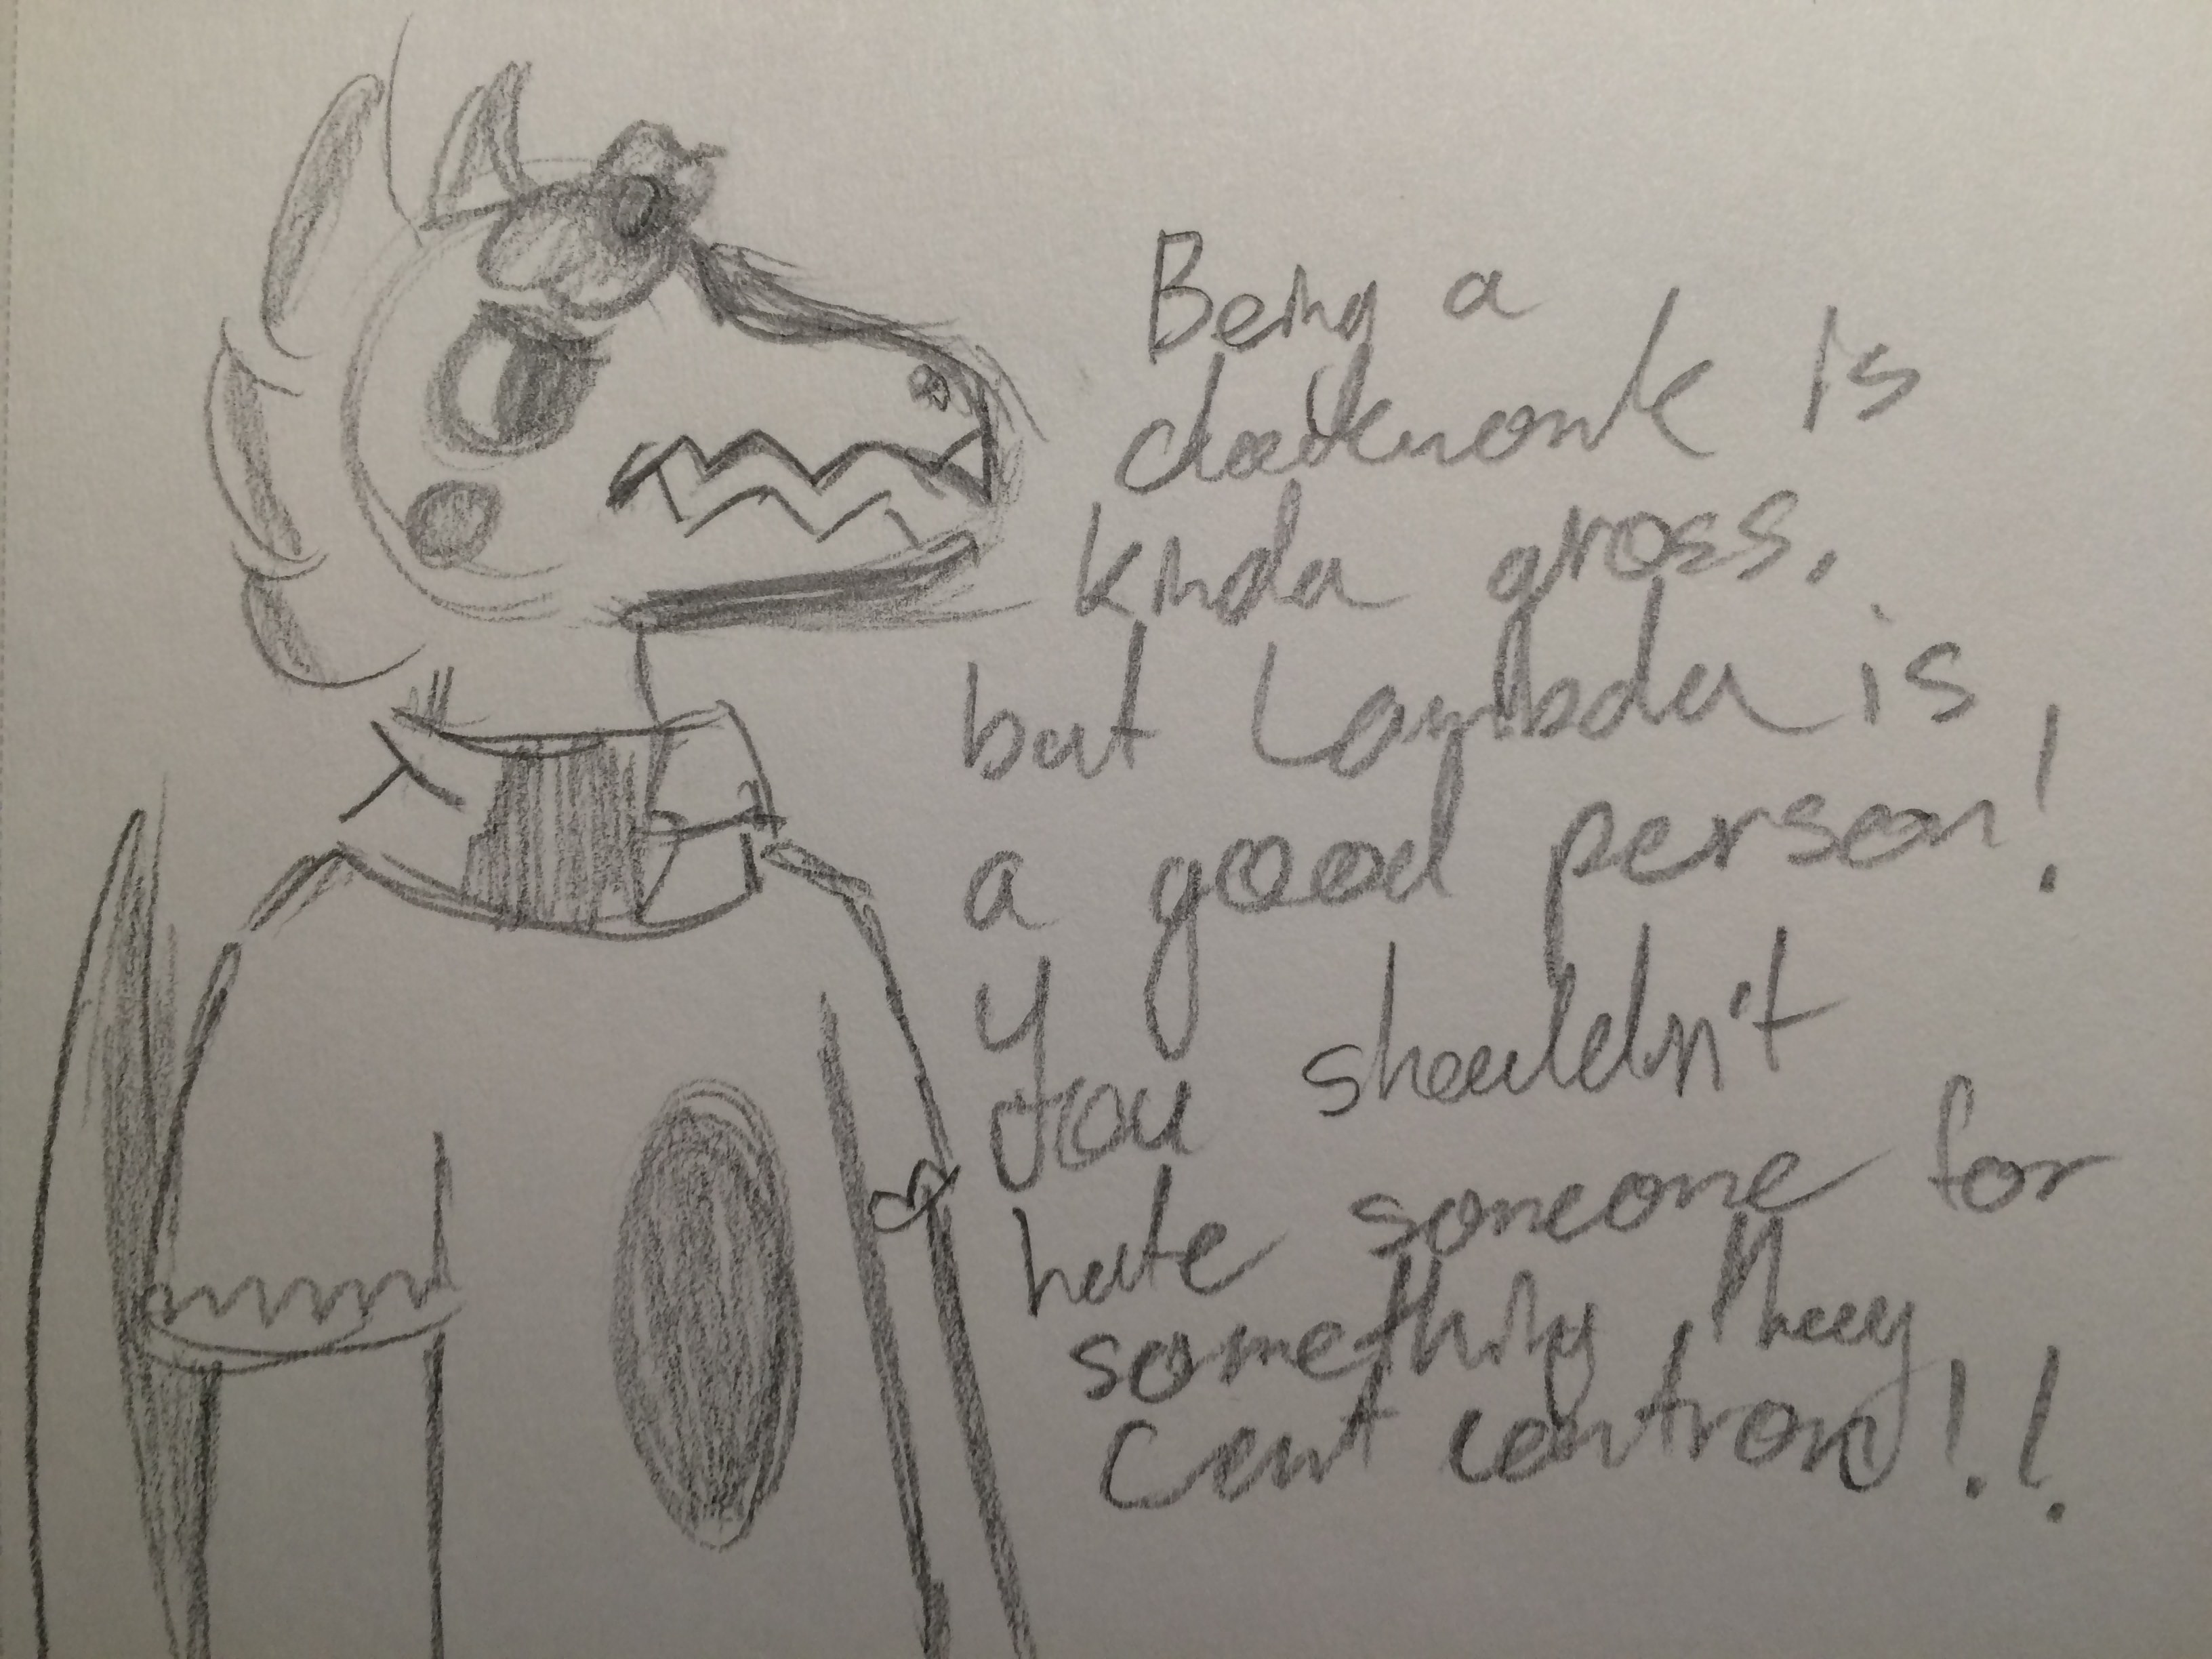 Being a
is
kinda gross.
but Lambda is
a good person!
y
you shouldn't
hate someone for
something they
cent controw!!